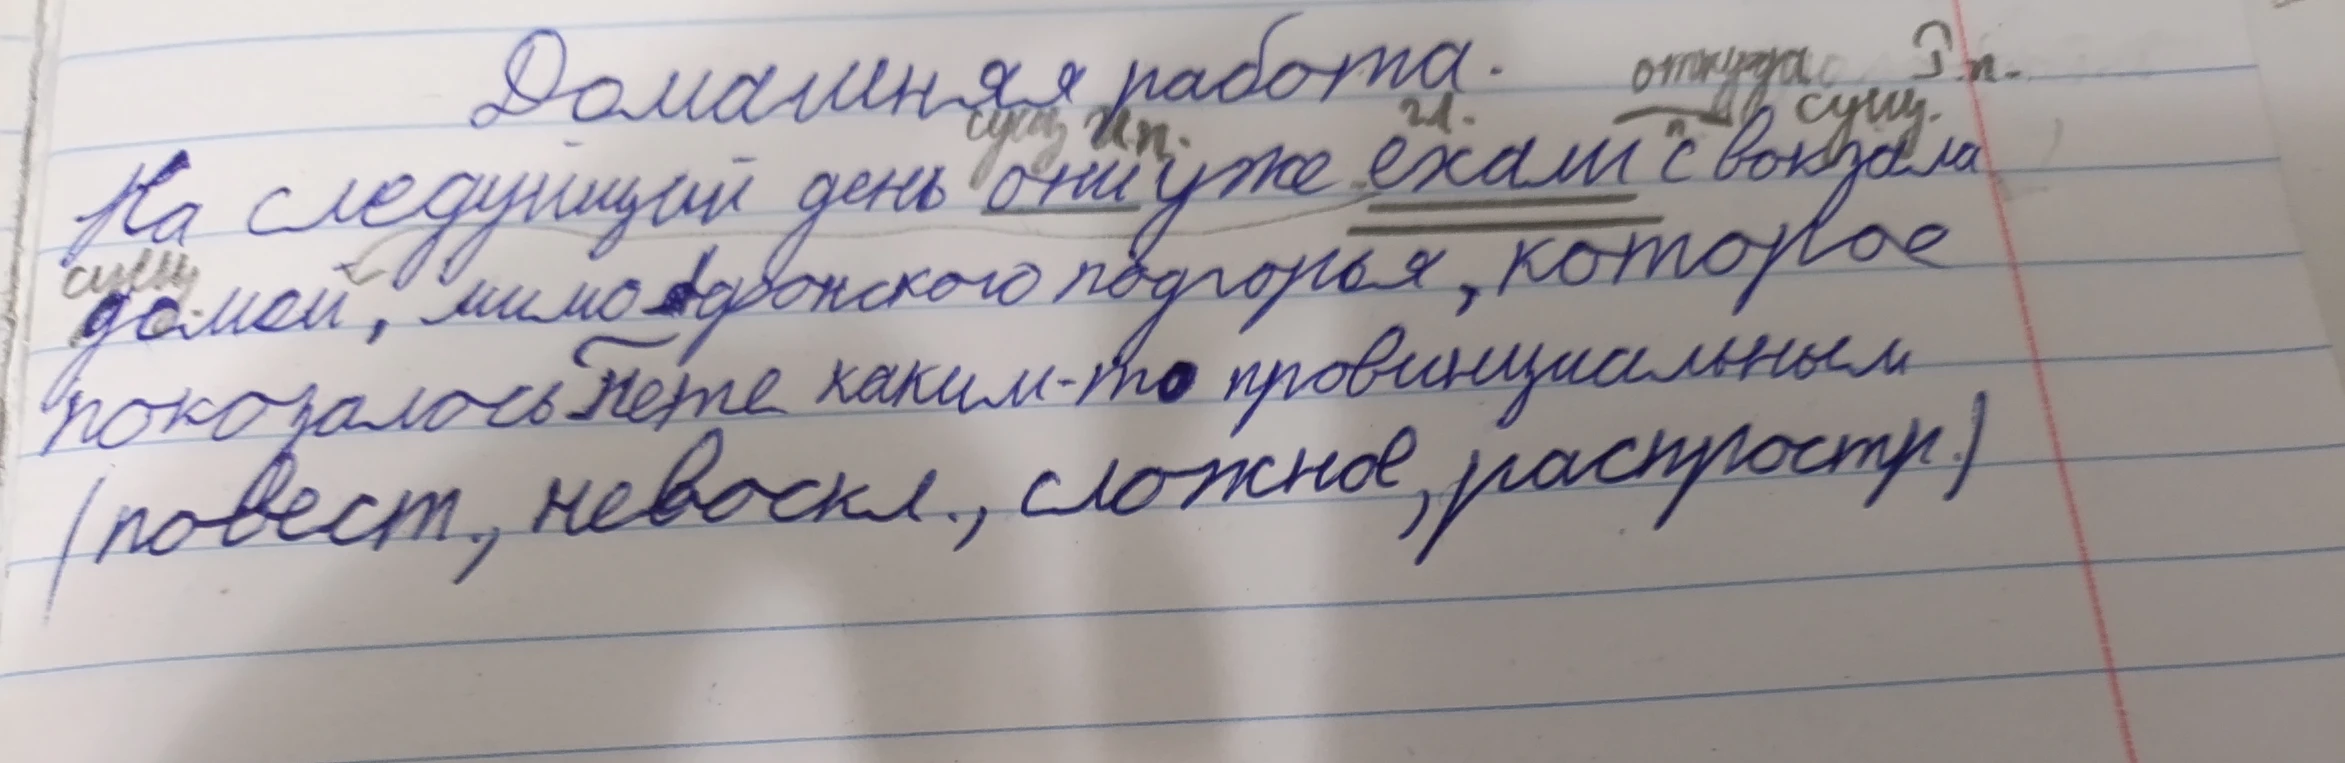 Домашняя работа.
откуда Р.п.
сущ. И.п. гл. п сущ.
На следующий день они уже ехали с вокзала
сущ.
домой, мимо афонского подгорья, которое
показалось Пете каким-то провинциальным
(повест., невоскл., сложное, распростр.)